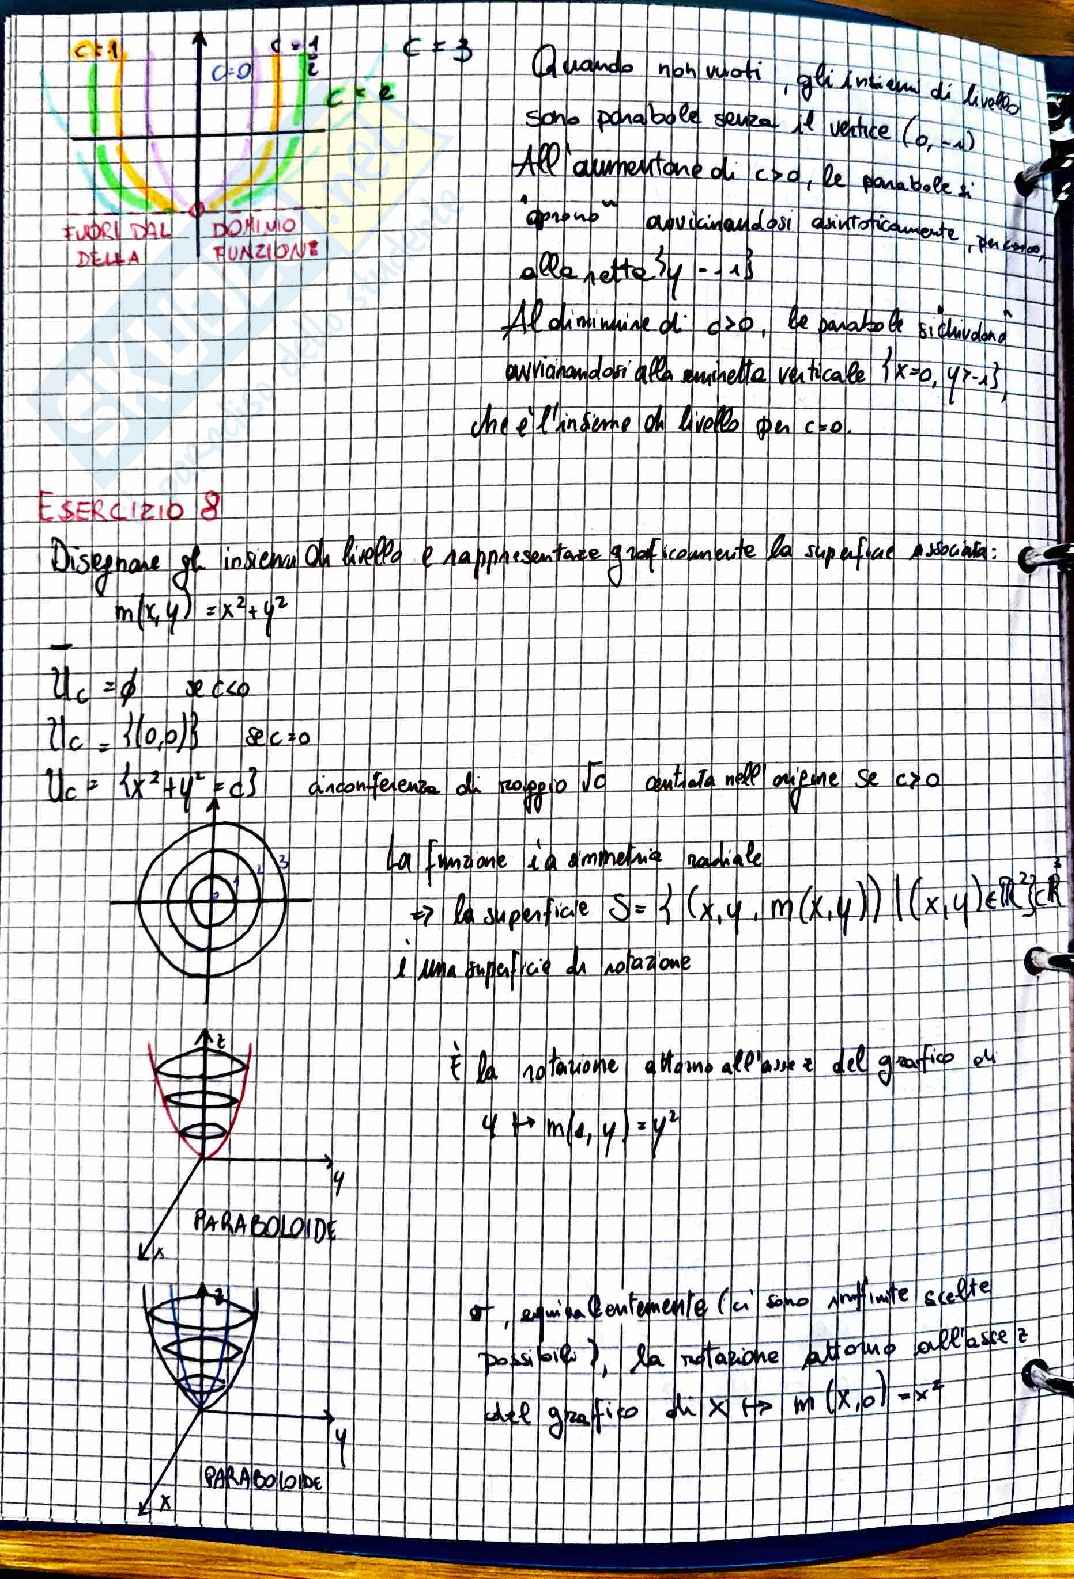 C=1
C=0
C=1/2
C=2
C=3
FUORI DAL DOMINIO
DELLA FUNZIONE
Quando non vuoti, gli insiemi di livello
sono parabole senza il vertice (0,-1)
All'aumentare di c>0, le parabole si
"aprono" avvicinandosi asintoticamente,
alla retta {y=-1}
Al diminuire di c>0, le parabole si "chiudono"
avvicinandosi alla semiretta verticale {x=0, y>-1},
che è l'insieme di livello per c=0.
ESERCIZIO 8
Disegnare gli insiemi di livello e rappresentare graficamente la superficie associata:
m(x,y) = x²+y²
Uc = ϕ se c<0
Uc = {(0,0)} se c=0
Uc = {x²+y²=c} circonferenza di raggio √c centrata nell'origine se c>0
1 2 3
La funzione è a simmetria radiale
=> la superficie S={(x,y,m(x,y))|(x,y)∈ℝ²}⊂ℝ³
è una superficie di rotazione
z
y
x
PARABOLOIDE
È la rotazione attorno all'asse z del grafico di
y ↦ m(0,y)=y²
z
y
x
PARABOLOIDE
o, equivalentemente (ci sono infinite scelte
possibili), la rotazione attorno all'asse z
del grafico di x ↦ m(x,0)=x²
SKUOLA.net
paradiso dello studente